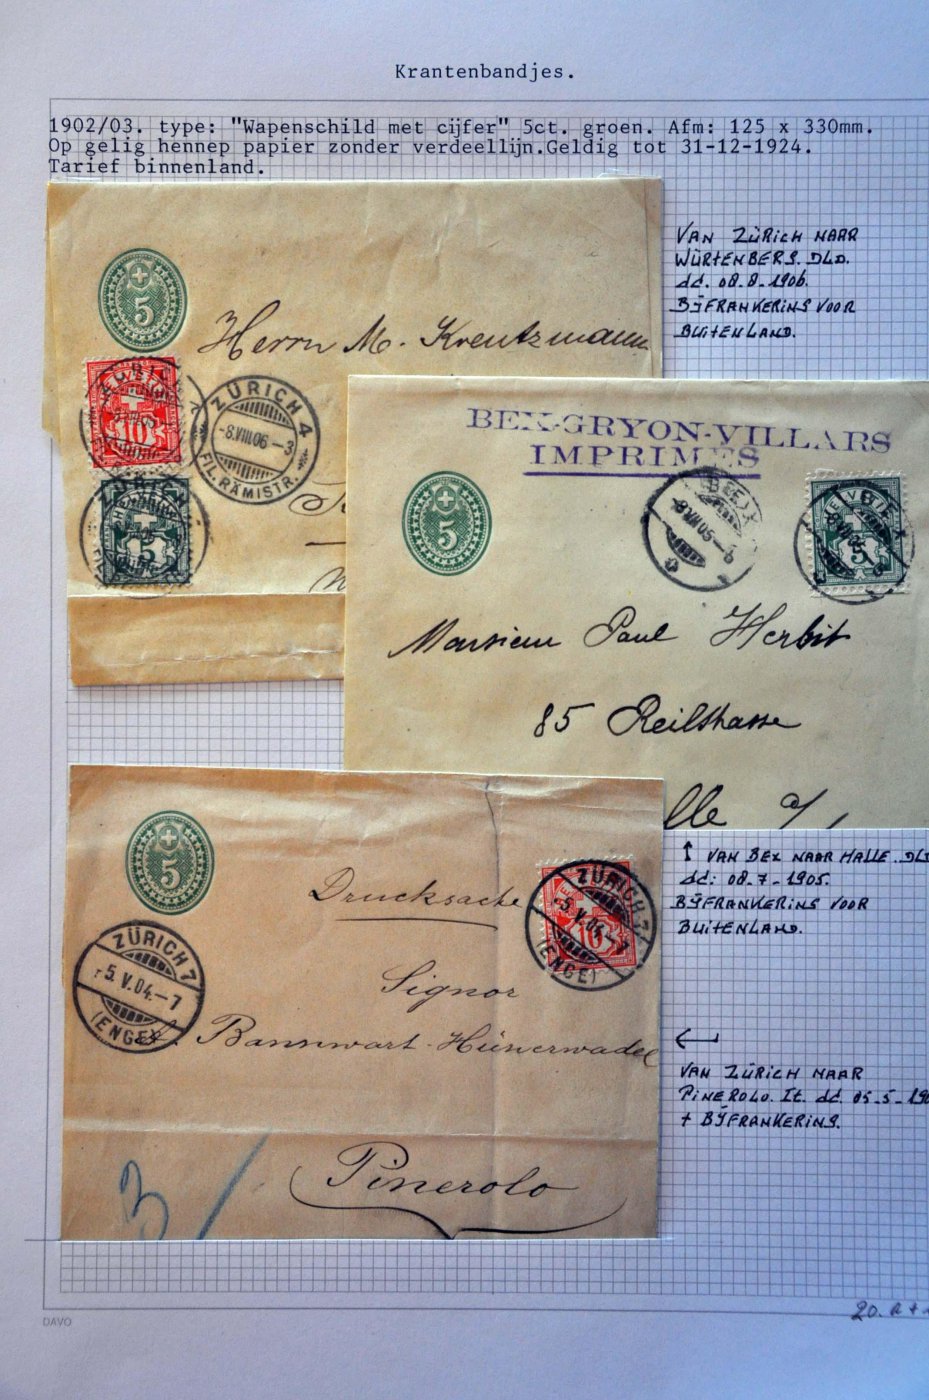 Krantenbandjes.
1902/03. type: "Wapenschild met cijfer" 5ct. groen. Afm: 125 x 330mm.
Op gelig hennep papier zonder verdeellijn.Geldig tot 31-12-1924.
Tarief binnenland.
5
Herrn M. Kreutzmann
10
ZÜRICH 4
-8.VIII.06-3
FIL. RÄMISTR.
ZÜRICH
5
VAN ZÜRICH NAAR
WÜRTENBERG. DLD.
dd. 08.8.1906.
BŸFRANKERING VOOR
BUITENLAND.
BEX-GRYON-VILLARS
IMPRIMES
5
BEX
8.VII.05-
HELVETIA
5
Monsieur Paul Herbit
85 Reilstrasse
lle a/
↑ VAN BEX NAAR HALLE. DLD
dd: 08.7-1905.
BŸFRANKERING VOOR
BUITENLAND.
5
Drucksache
ZÜRICH 7
-5.V.04.-7
(ENGE)
10
ZÜRICH 7
5.V.04.-7
(ENGE)
Signor
Bannwart-Hünerwadel
Pinerolo
3/
←
VAN ZÜRICH NAAR
PINEROLO. It. dd. 05-5-190
+ BŸFRANKERING.
DAVO
20.